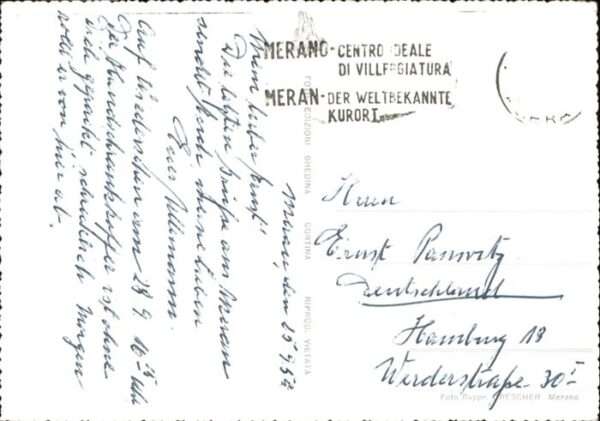 MERANO - CENTRO IDEALE
DI VILLEGGIATURA
MERAN - DER WELTBEKANNTE
KURORT
Meran, den 25.9.52
Mein lieber Ernst!
Die letzten Grüße aus Meran
sendet Euch meine Lieben
Euer
Auf Wiedersehen am 28.9. 16 Uhr
Der ist ohne
mich Morgen
rollt er von hier ab.
Herrn
Ernst Pannwitz
Deutschland
Hamburg 13
Werderstraße 30 I
FOTO EDIZIONI GHEDINA CORTINA RIPROD. VIETATA
Foto DRESCHER Merano